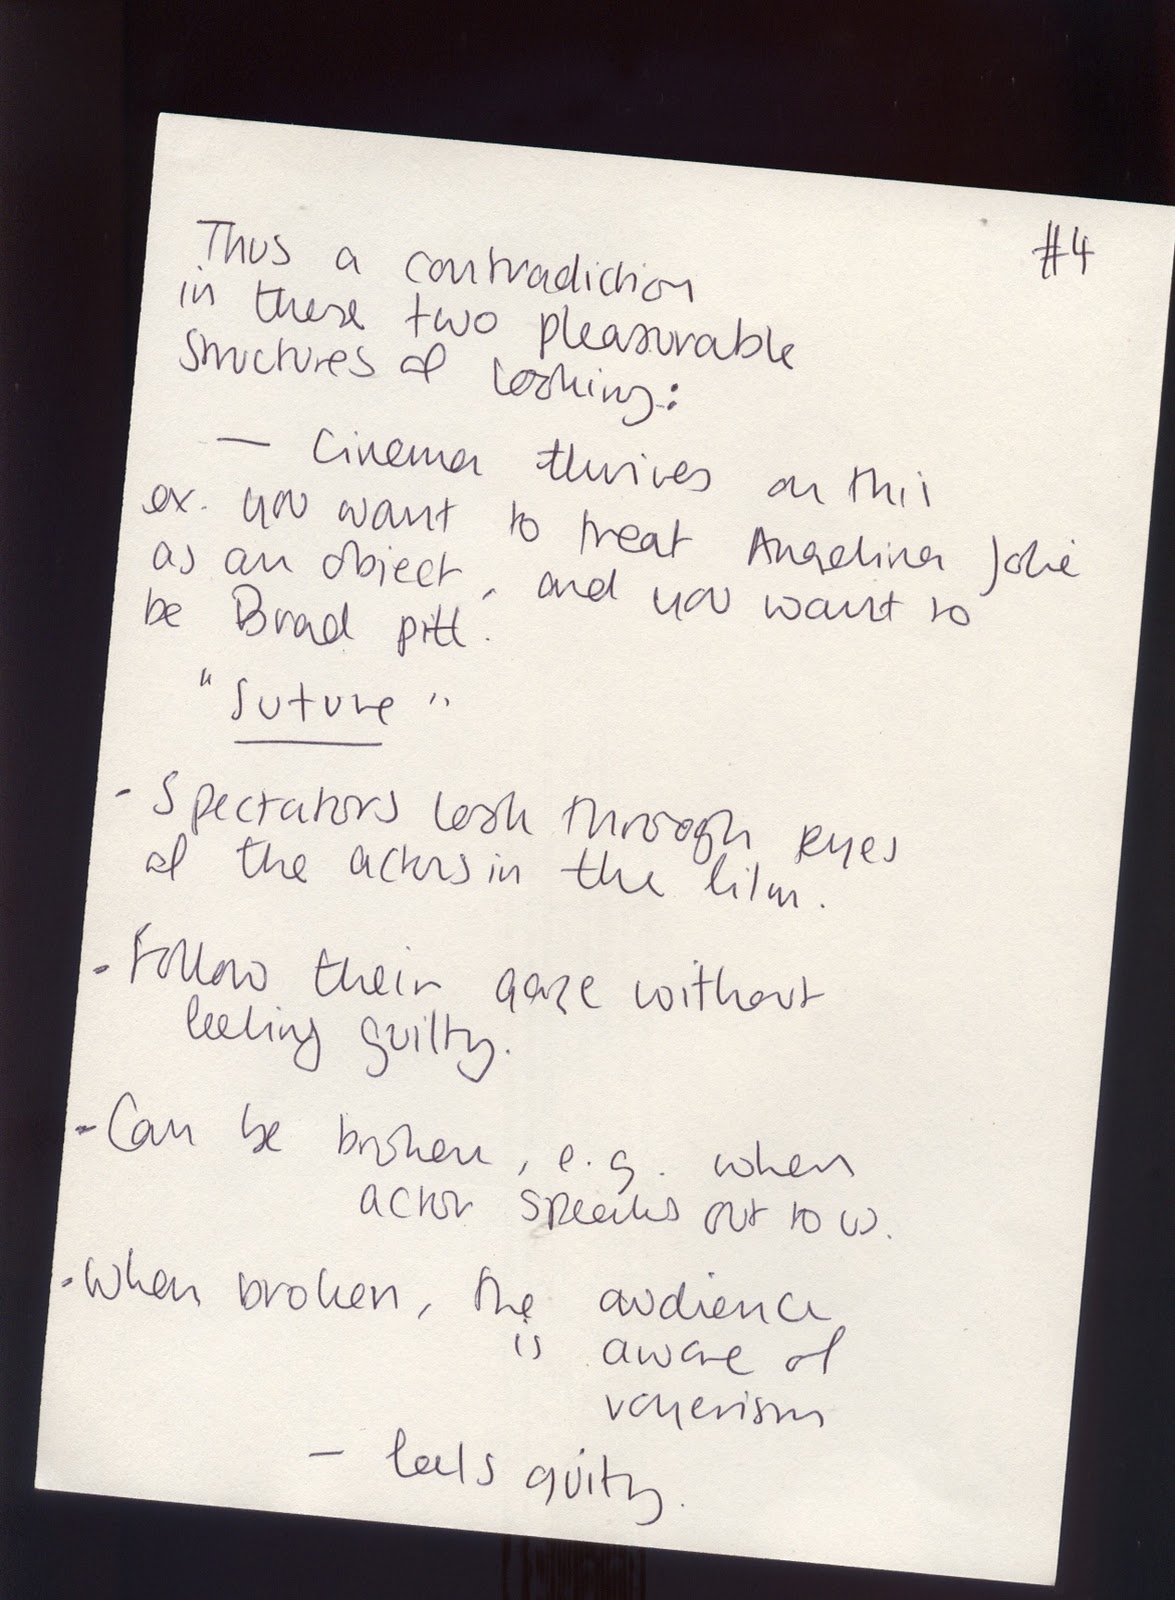 #4
Thus a contradiction
in these two pleasurable
structures of looking:
— Cinema thrives on this
ex. you want to treat Angelina Jolie
as an object, and you want to
be Brad pitt.
"Suture"
- Spectators look through eyes
of the actors in the film.
- Follow their gaze without
feeling guilty.
- Can be broken, e.g. when
actor speaks out to us.
- When broken, the audience
is aware of
voyerism
— feels guilty.